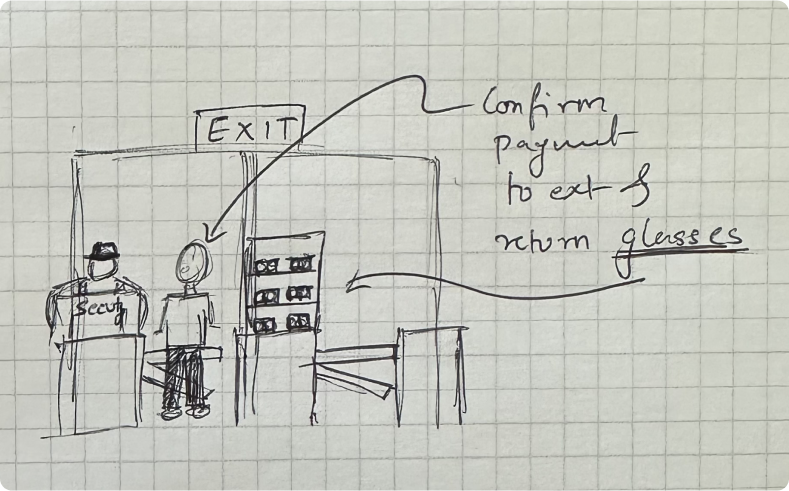 EXIT
Confirm
payment
to exit &
return glasses
Security